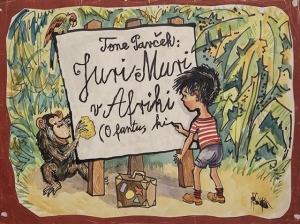 Tone Pavček:
Juri Muri
v Afriki
(O fantu, ki